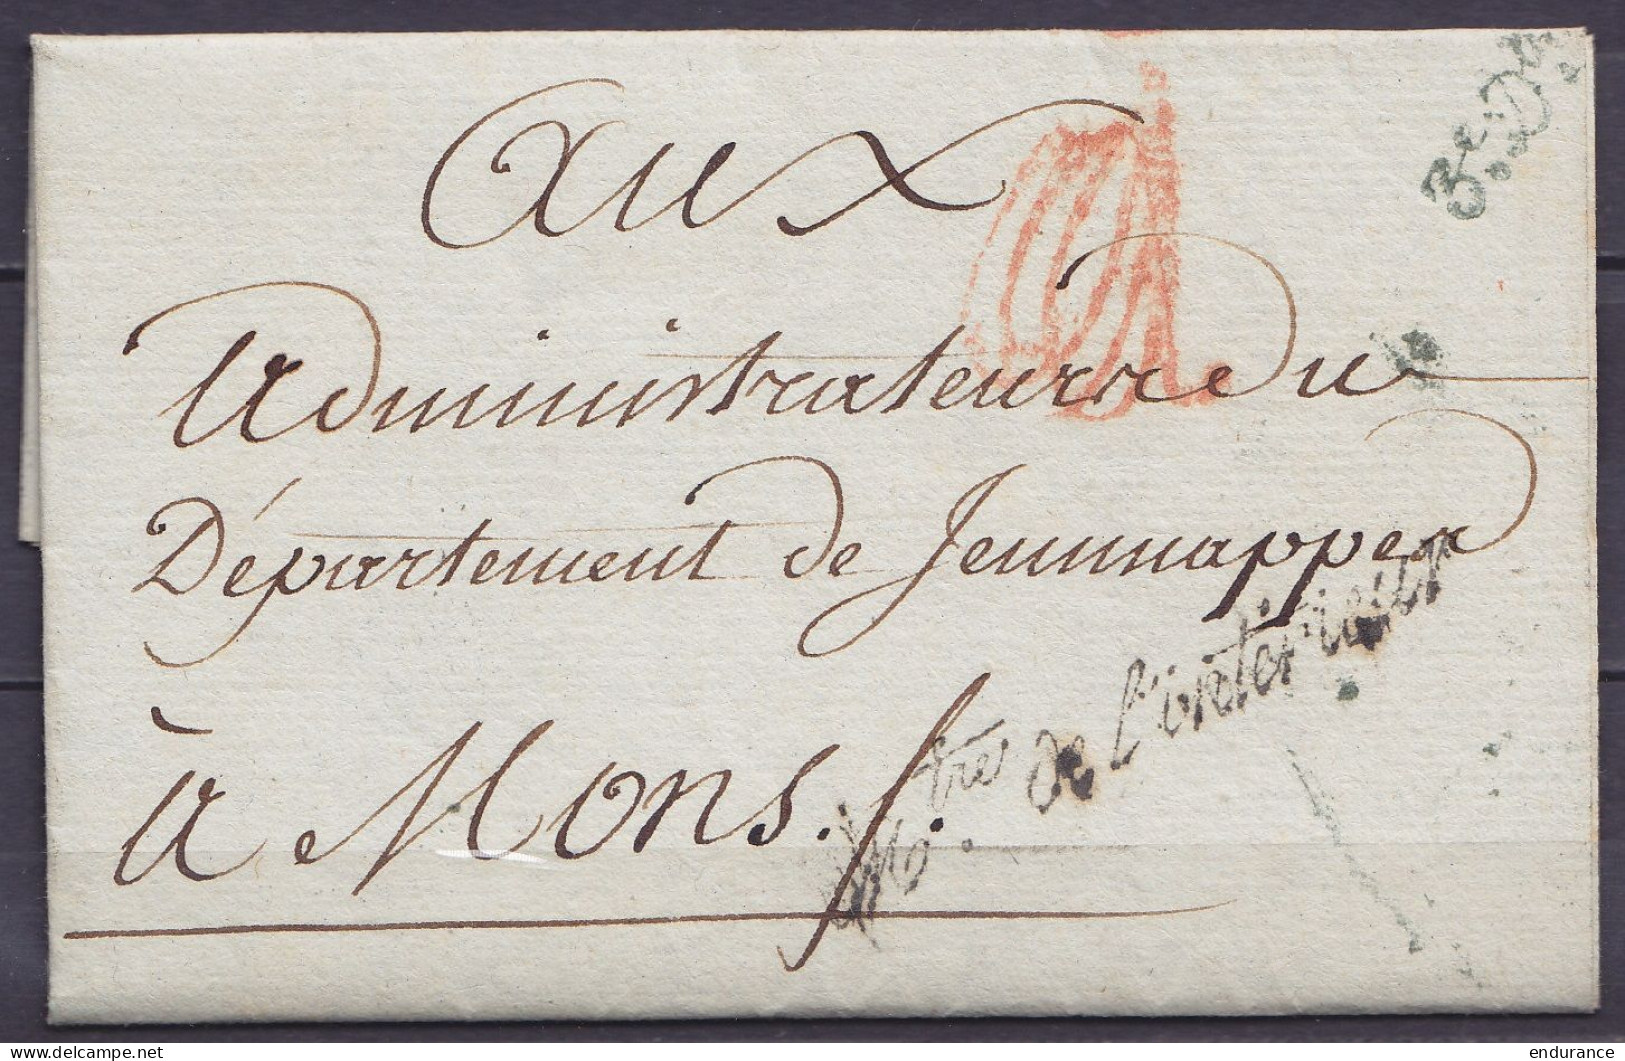 3e. D.on
Aux
Administrateurs du
Département de Jemmappes
à Mons.
Mo. tre de L'intérieur
delcampe.net
endurance